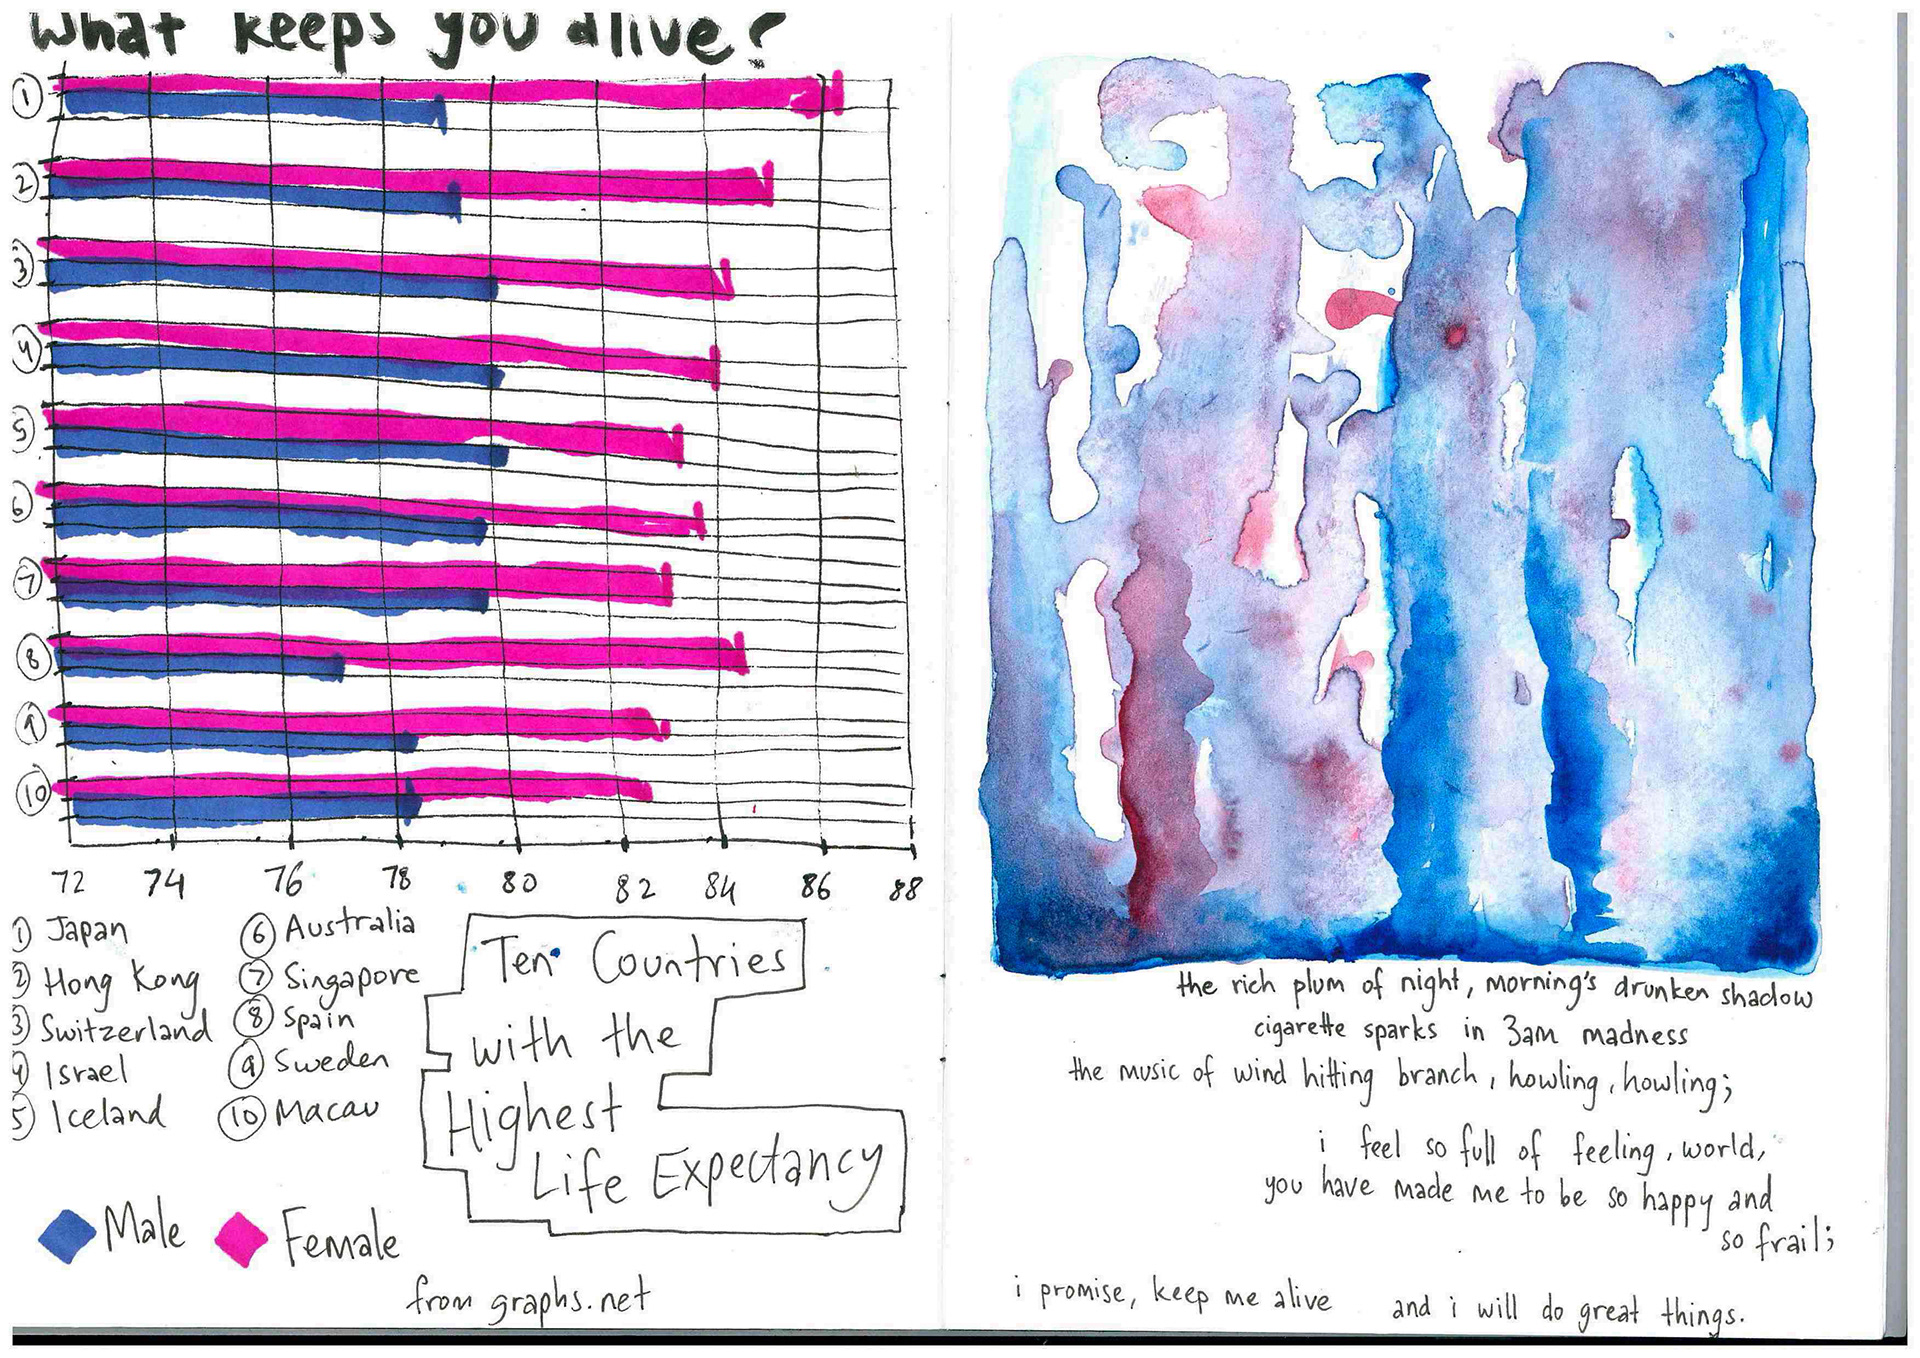 What keeps you alive?
1
2
3
4
5
6
7
8
9
10
72 74 76 78 80 82 84 86 88
1 Japan
2 Hong Kong
3 Switzerland
4 Israel
5 Iceland
6 Australia
7 Singapore
8 Spain
9 Sweden
10 Macau
Ten Countries
with the
Highest
Life Expectancy
Male Female
from graphs.net
the rich plum of night, morning's drunken shadow
cigarette sparks in 3am madness
the music of wind hitting branch, howling, howling;
i feel so full of feeling, world,
you have made me to be so happy and
so frail;
i promise, keep me alive and i will do great things.